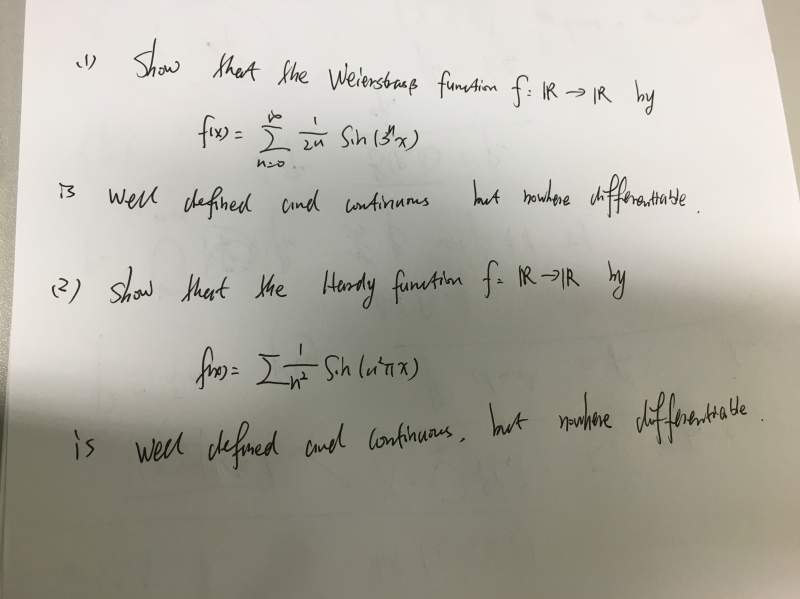 (1) Show that the Weierstraß function f: ℝ → ℝ by
f(x) = ∑_{n=0}^{∞} 1/2n Sin(3ⁿx)
is well defined and continuous but nowhere differentiable.
(2) Show that the Hardy function f: ℝ → ℝ by
f(x) = ∑ 1/n² Sin(n²πx)
is well defined and continuous, but nowhere differentiable.